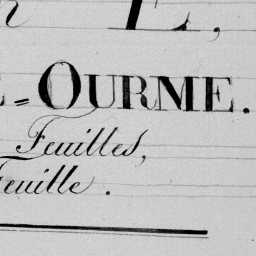 E,
E=OURME.
Feuilles,
Feuille.